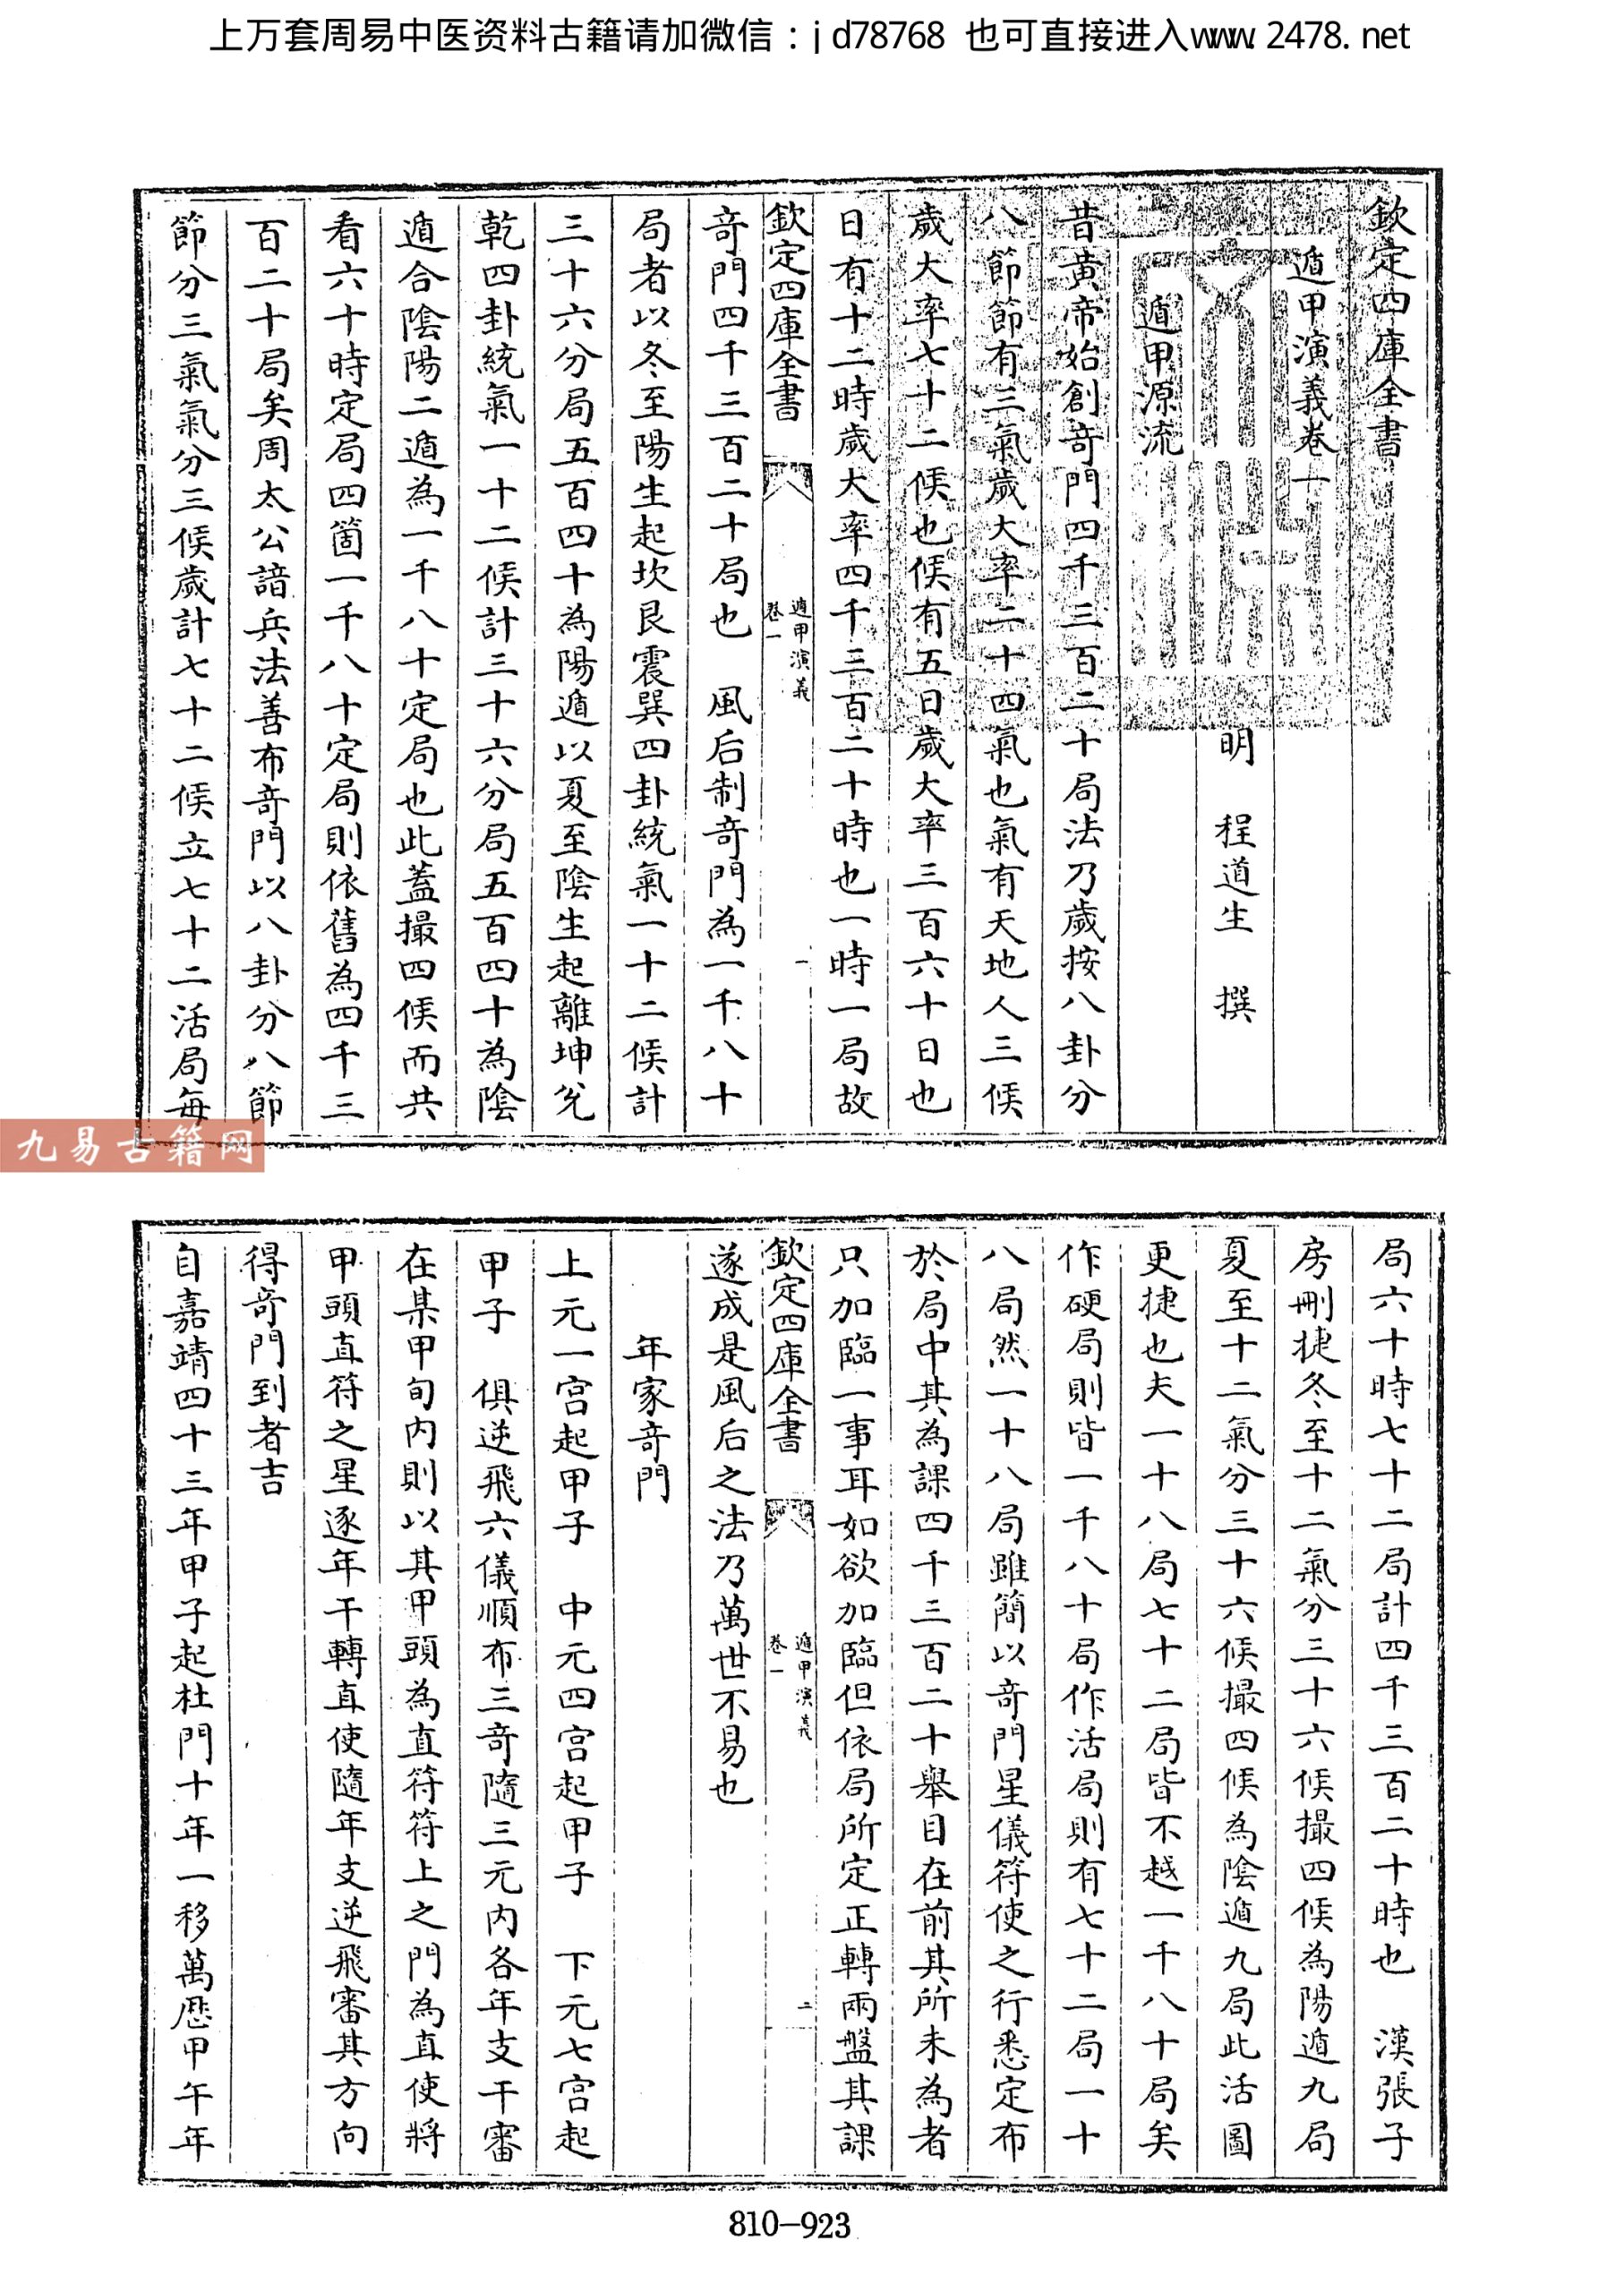 上万套周易中医资料古籍请加微信：jd78768 也可直接进入www.2478.net
欽定四庫全書
遁甲演義卷一
明 程道生 撰
遁甲源流
昔黃帝始創竒門四千三百二十局法乃歲按八卦分
八節節有三氣歲大率二十四氣也氣有天地人三候
歲大率七十二候也候有五日歲大率三百六十日也
日有十二時歲大率四千三百二十時也一時一局故
欽定四庫全書
遁甲演義
卷一
一
竒門四千三百二十局也 風后制竒門為一千八十
局者以冬至陽生起坎艮震巽四卦統氣一十二候計
三十六分局五百四十為陽遁以夏至陰生起離坤兊
乾四卦統氣一十二候計三十六分局五百四十為陰
遁合陰陽二遁為一千八十定局也此蓋撮四候而共
看六十時定局四箇一千八十定局則依舊為四千三
百二十局矣周太公諳兵法善布竒門以八卦分八節
節分三氣氣分三候歲計七十二候立七十二活局每
九易古籍网
局六十時七十二局計四千三百二十時也 漢張子
房刪捷冬至十二氣分三十六候撮四候為陽遁九局
夏至十二氣分三十六候撮四候為陰遁九局此活圖
更捷也夫一十八局七十二局皆不越一千八十局矣
作硬局則皆一千八十局作活局則有七十二局一十
八局然一十八局雖簡以竒門星儀符使之行悉定布
於局中其為課四千三百二十舉目在前其所未為者
只加臨一事耳如欲加臨但依局所定正轉兩盤其課
欽定四庫全書
遁甲演義
卷一
二
遂成是風后之法乃萬世不易也
年家竒門
上元一宫起甲子 中元四宫起甲子 下元七宫起
甲子 俱逆飛六儀順布三竒隨三元内各年支干審
在某甲旬内則以其甲頭為直符符上之門為直使將
甲頭直符之星逐年干轉直使隨年支逆飛審其方向
得竒門到者吉
自嘉靖四十三年甲子起杜門十年一移萬歴甲午年
810-923